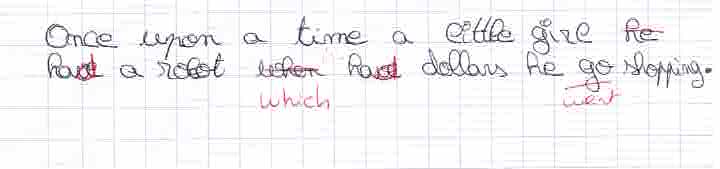 Once upon a time a little girl he
had a robot when had dollars he go shopping.
which went